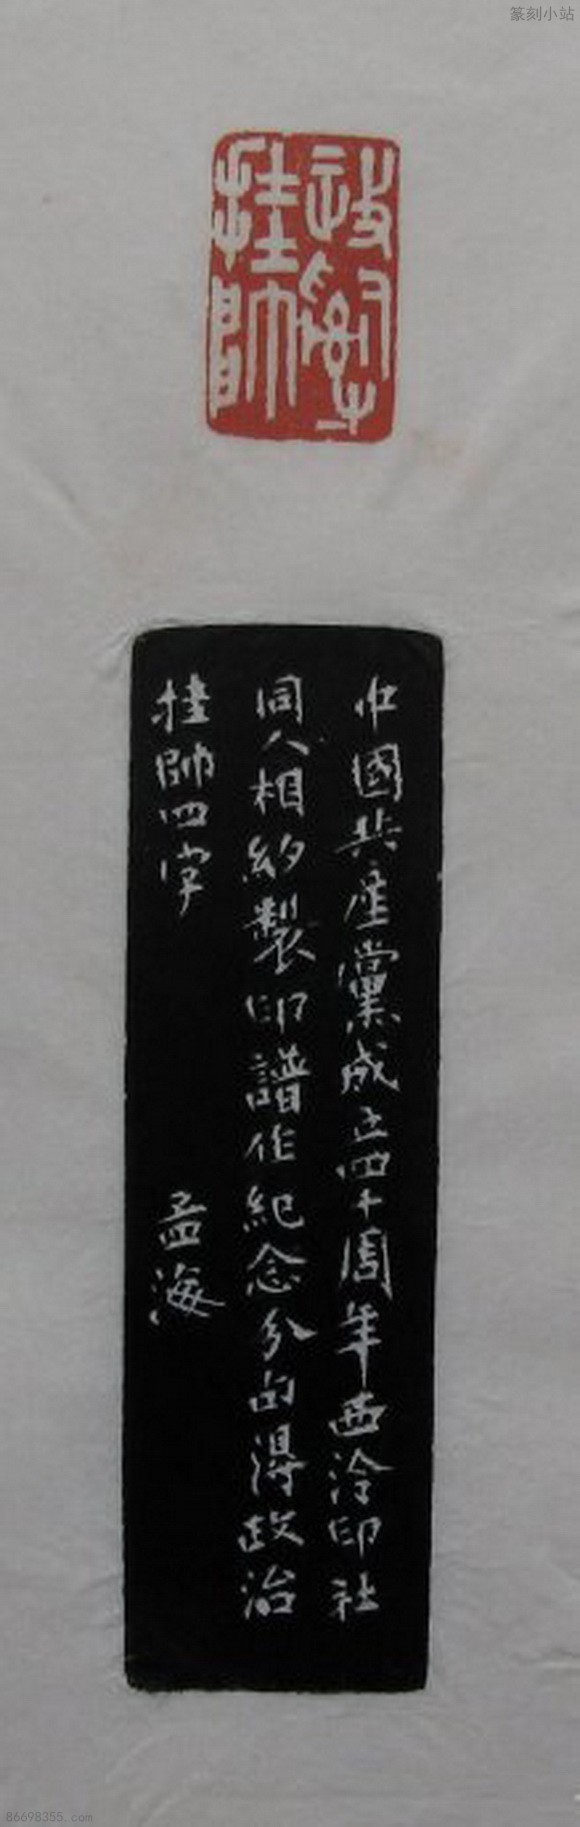 篆刻小站
政治
挂帥
中國共產黨成立四十周年西泠印社
同人相約製印譜作紀念分占得政治
挂帥四字 孟海
86698355.com